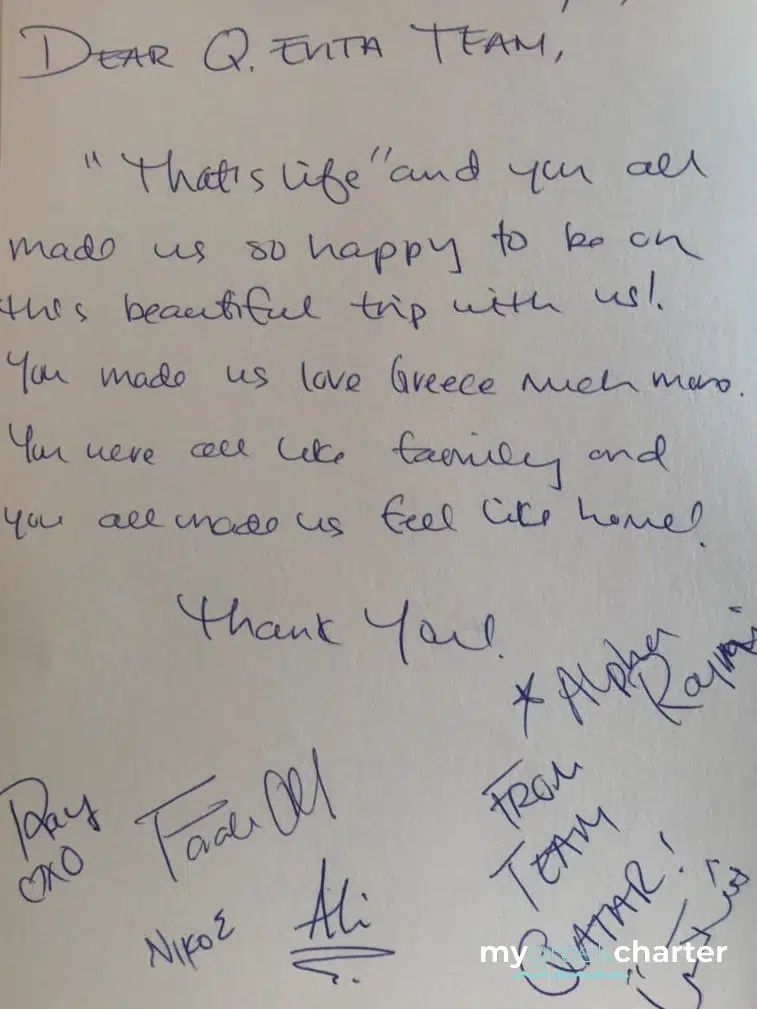 DEAR Q. EVITA TEAM,
"That's life" and you all
made us so happy to be on
this beautiful trip with us!
You made us love Greece much more.
You were all like family and
you all made us feel like home!
Thank You!
* Alpha
Ray
OXO
ΝΙΚΟΣ
Ali
FROM
TEAM
QATAR!
mygreekcharter